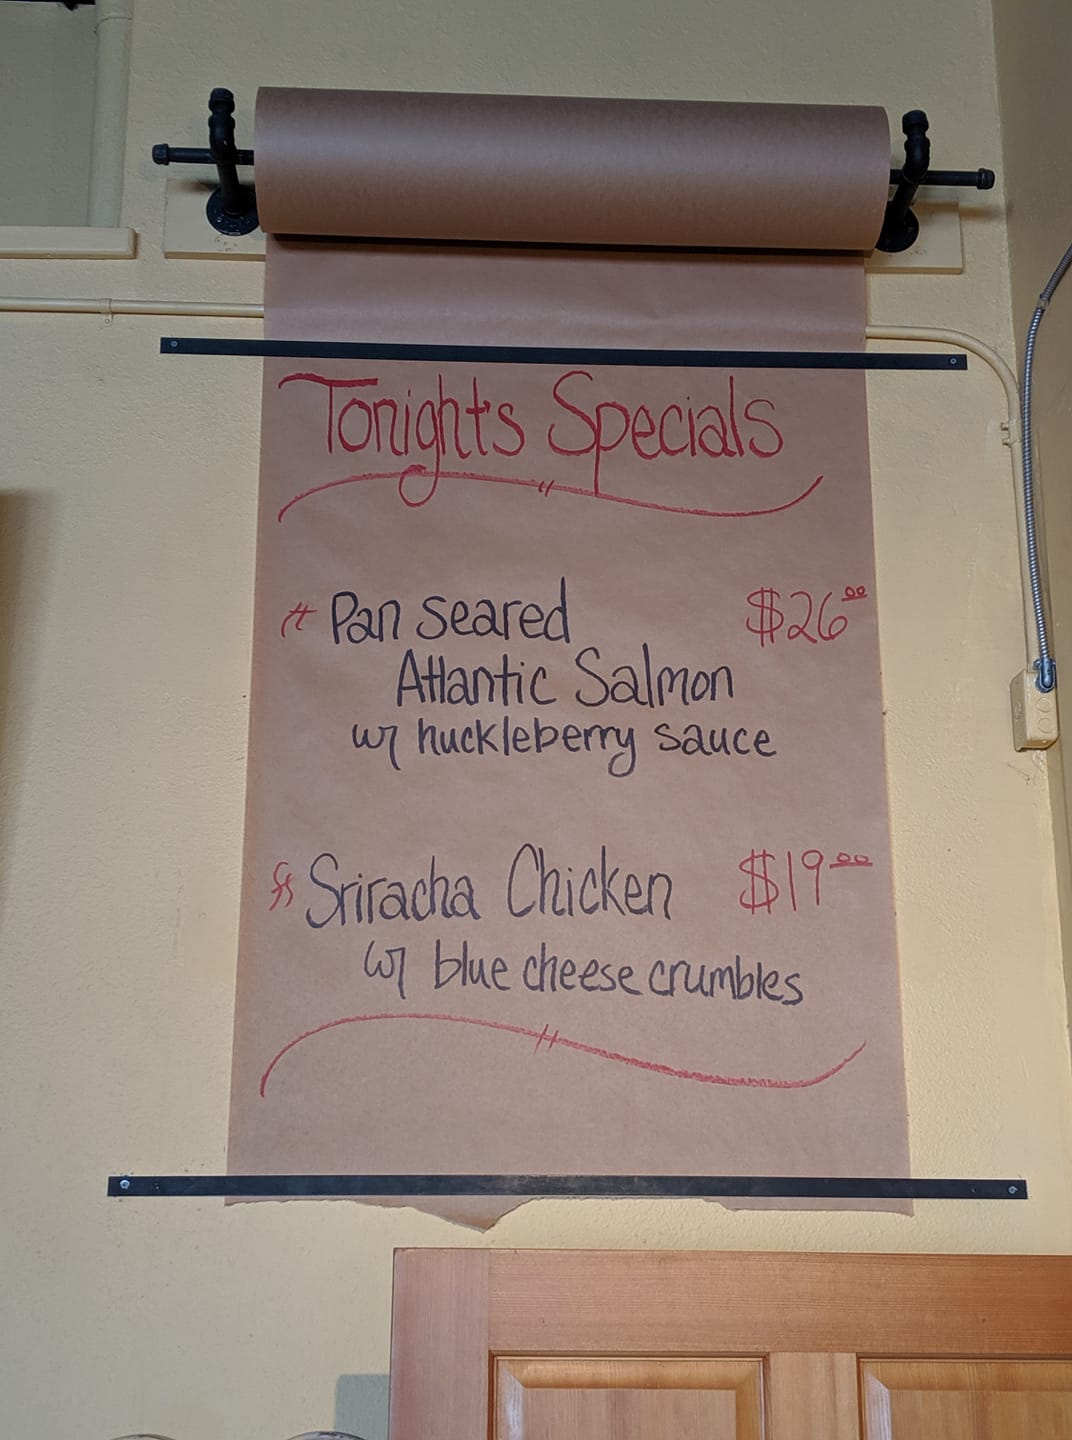 Tonight's Specials
Pan seared $26.00
Atlantic Salmon
w/ huckleberry sauce
Sriracha Chicken $19.00
w/ blue cheese crumbles